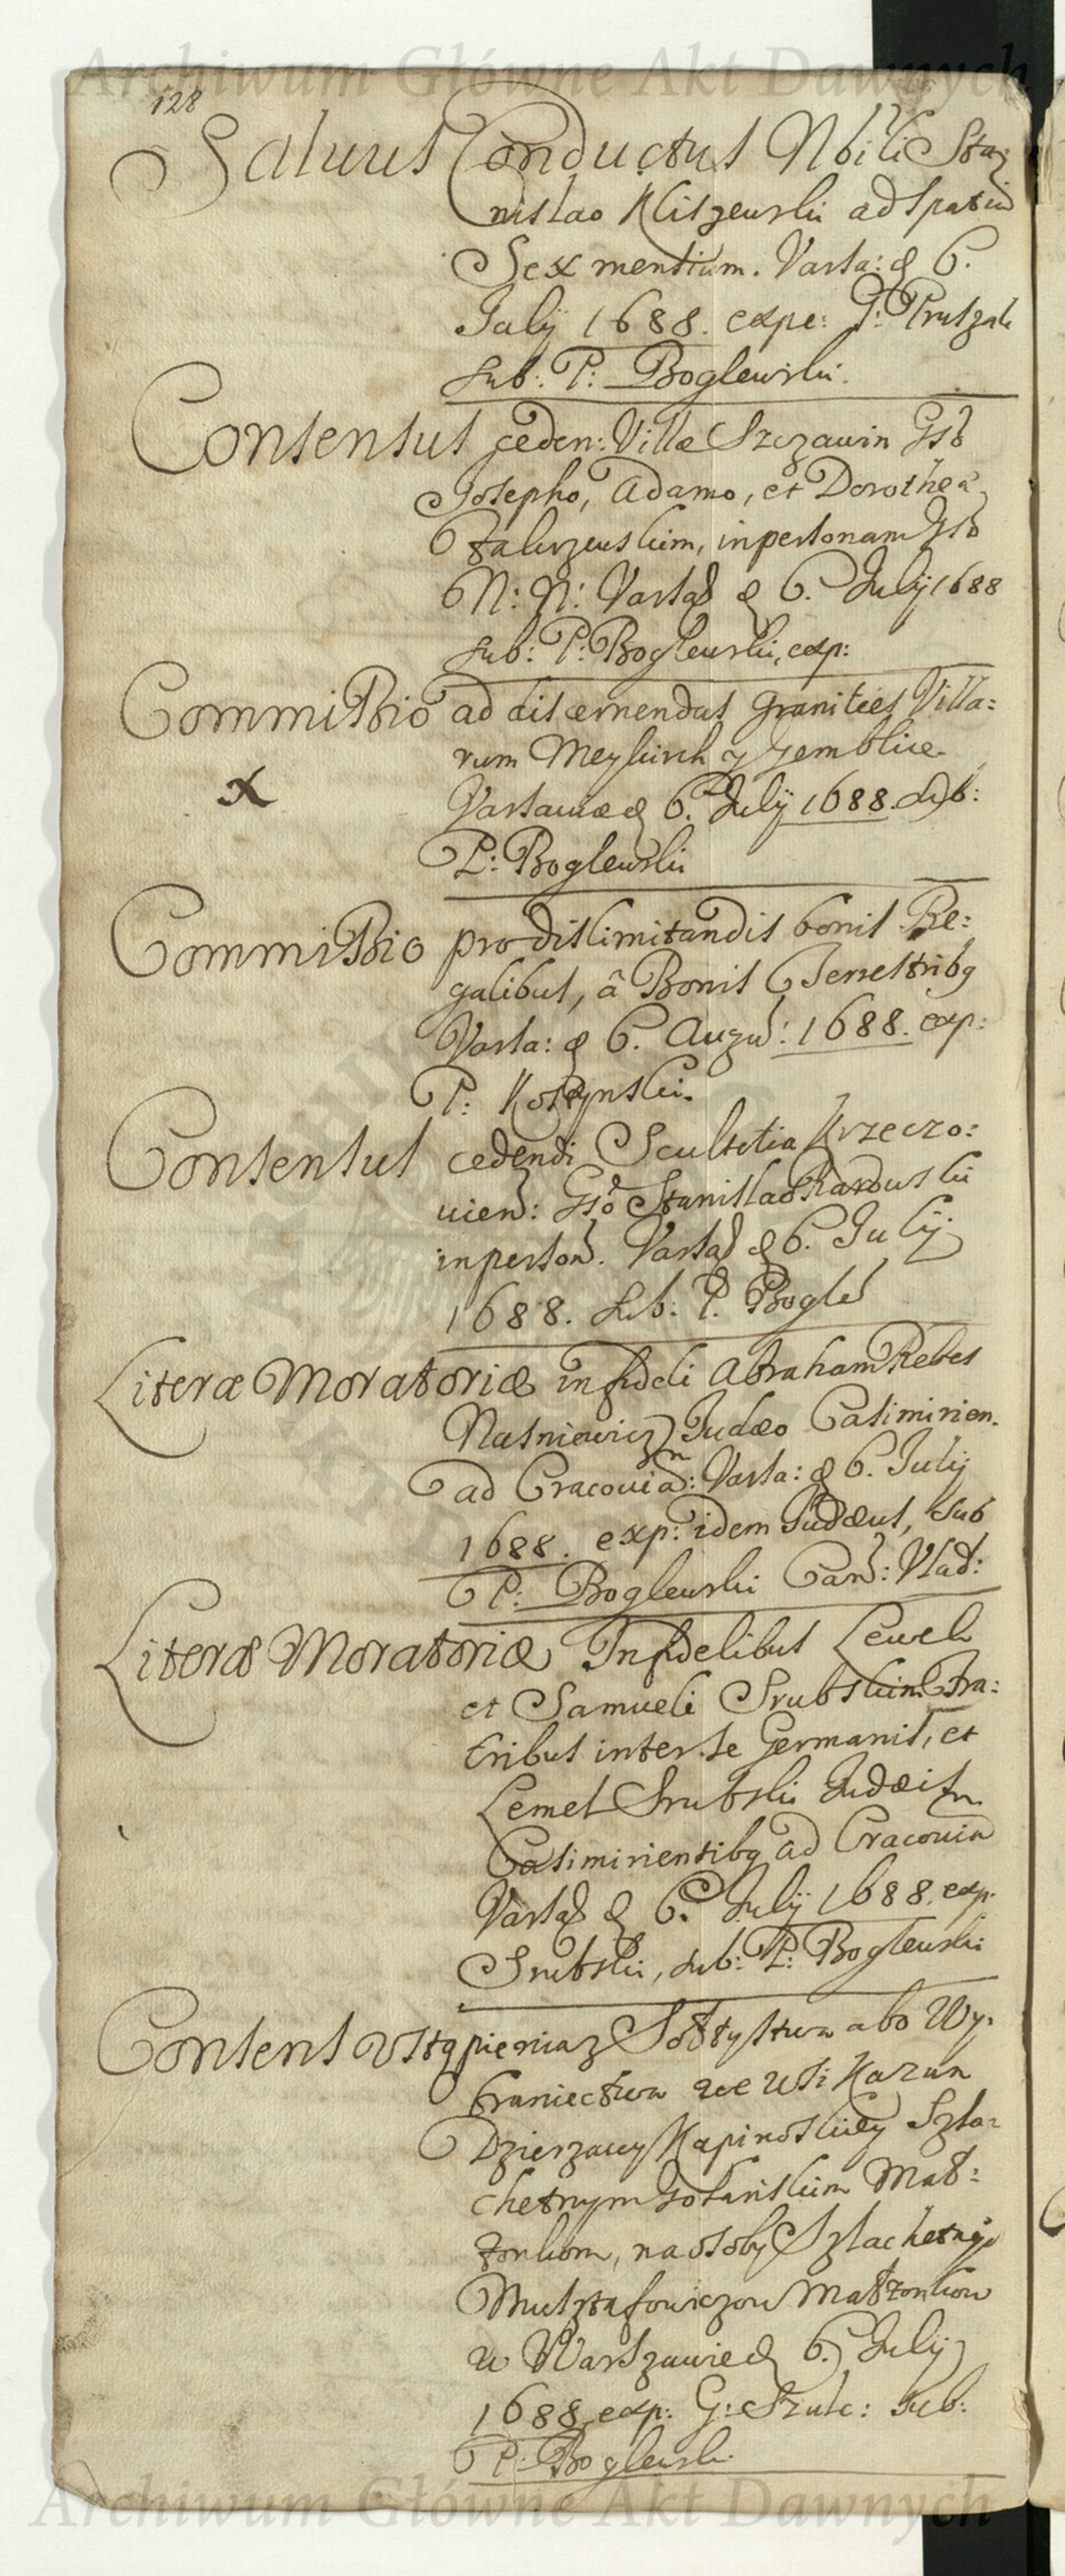 Archiwum Główne Akt Dawnych
128
Salvus Conductus Nbili Sta:
nislao Kliszewski ad spatiū
Sex mensium. Varsa: d 6.
July 1688. expe: P:
sub: P: Boglewski.
Consensus ceden: Villæ Szczawin Gsb
Josepho, Adamo, et Dorotheæ
in personam Gsb
N: N: Varsa d 6. July 1688
sub: P: Boglewski, exp:
Commissio ad discernendas granities Villa:
rum Meykirch y Gemblice
x
Varsaviæ d 6. July 1688. sub:
P: Boglewski
Commissio pro dislimitandis bonis Re:
galibus, â Bonis Terrestribq
Varsa: d 6. Augu: 1688. exp:
P:
Consensus cedendi Scultetia Krzeczo:
vien: Gso Stanislao
in person. Varsa d 6. July
1688. sub: P. Bogle
Literæ Moratoriæ infideli Abraham Rebes
Natniewicz Judæo Casimirien.
ad Cracoviā: Varsa: d 6. July
1688. exp: idem Judæus, sub
P: Boglewski Can: Vlad:
Literæ Moratoriæ Infidelibus Lewek
et Samueli Srubskim Fra:
tribus inter se Germanis, et
Lemel Srubski Judæis
Casimiriensibq ad Cracoviā
Varsa d 6. July 1688. exp.
Srubski, sub: P: Boglewski
Consens Vstąpienia z Sołtystwa abo Wy:
braniectwa we Wsi Kazun
Dzierzawy Kapinoskiey Szla:
chetnym Małż:
zonkom, na osoby Szlachetnych
Mustafowiczow Małżonkow
w Warszawie d 6. July
1688 exp: G: Szulc: sub:
P: Boglewski
Archiwum Główne Akt Dawnych